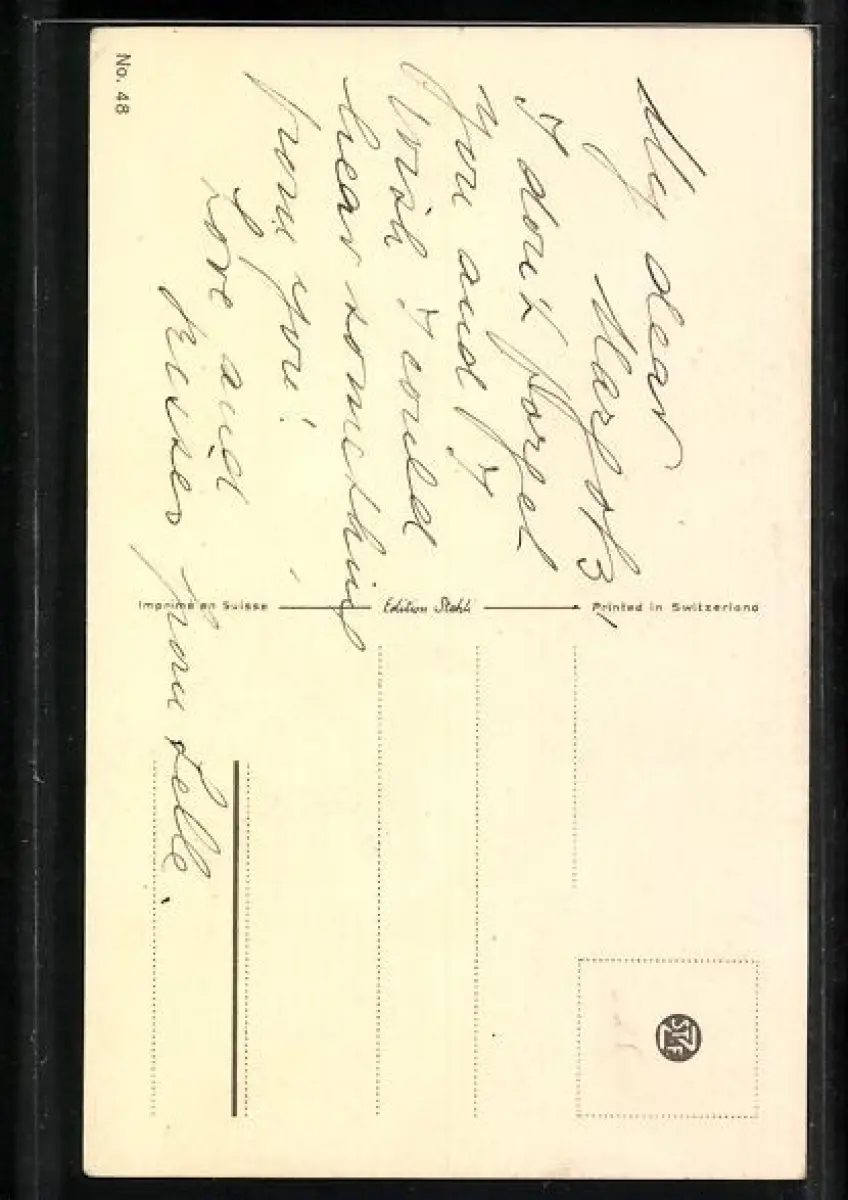 My dear
Margot!
I don't forget
you and I
wish I could
hear something
from you!
Love and
kisses from Lelle.
No. 48
Imprimé en Suisse
Edition Stehli
Printed in Switzerland